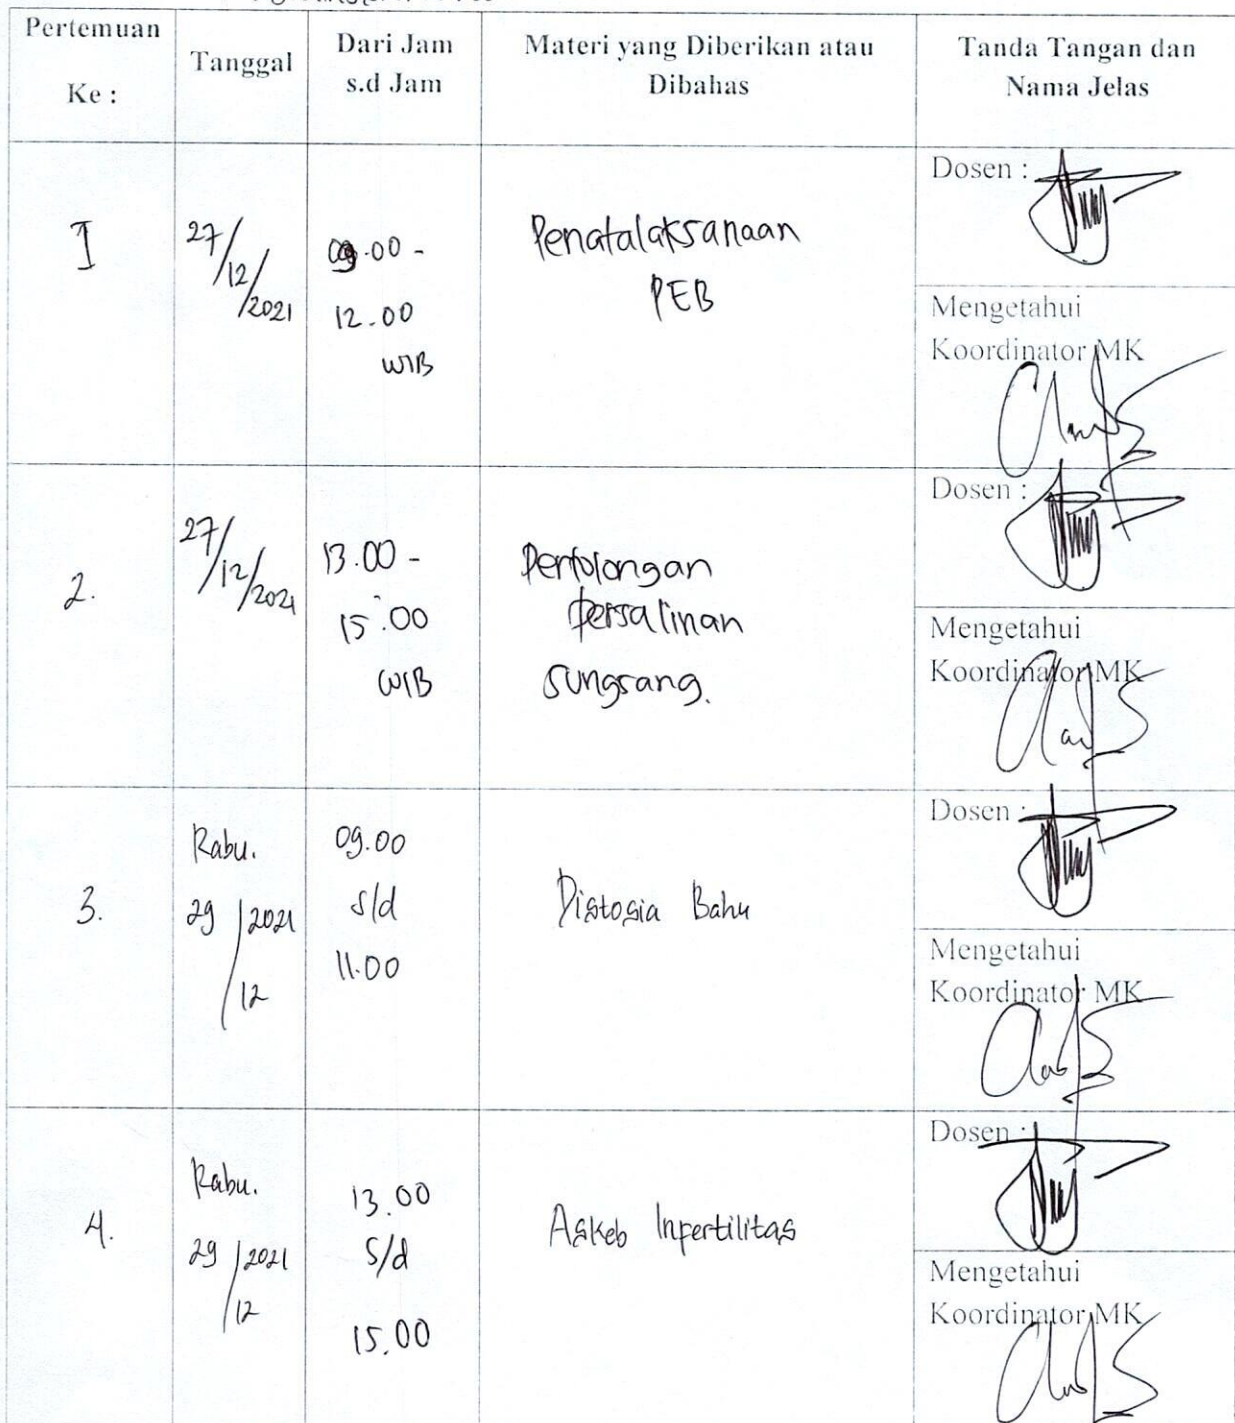 Pertemuan
Ke :
Tanggal
Dari Jam
s.d Jam
Materi yang Diberikan atau
Dibahas
Tanda Tangan dan
Nama Jelas
I
27/12/2021
09.00 -
12.00
WIB
Penatalaksanaan
PEB
Dosen :
Mengetahui
Koordinator MK
2.
27/12/2021
13.00 -
15.00
WIB
Pertolongan
persalinan
sungsang.
Dosen :
Mengetahui
Koordinator MK
3.
Rabu.
29/12/2021
09.00
s/d
11.00
Distosia Bahu
Dosen :
Mengetahui
Koordinator MK
4.
Rabu.
29/12/2021
13.00
s/d
15.00
Askeb Inpertilitas
Dosen :
Mengetahui
Koordinator MK